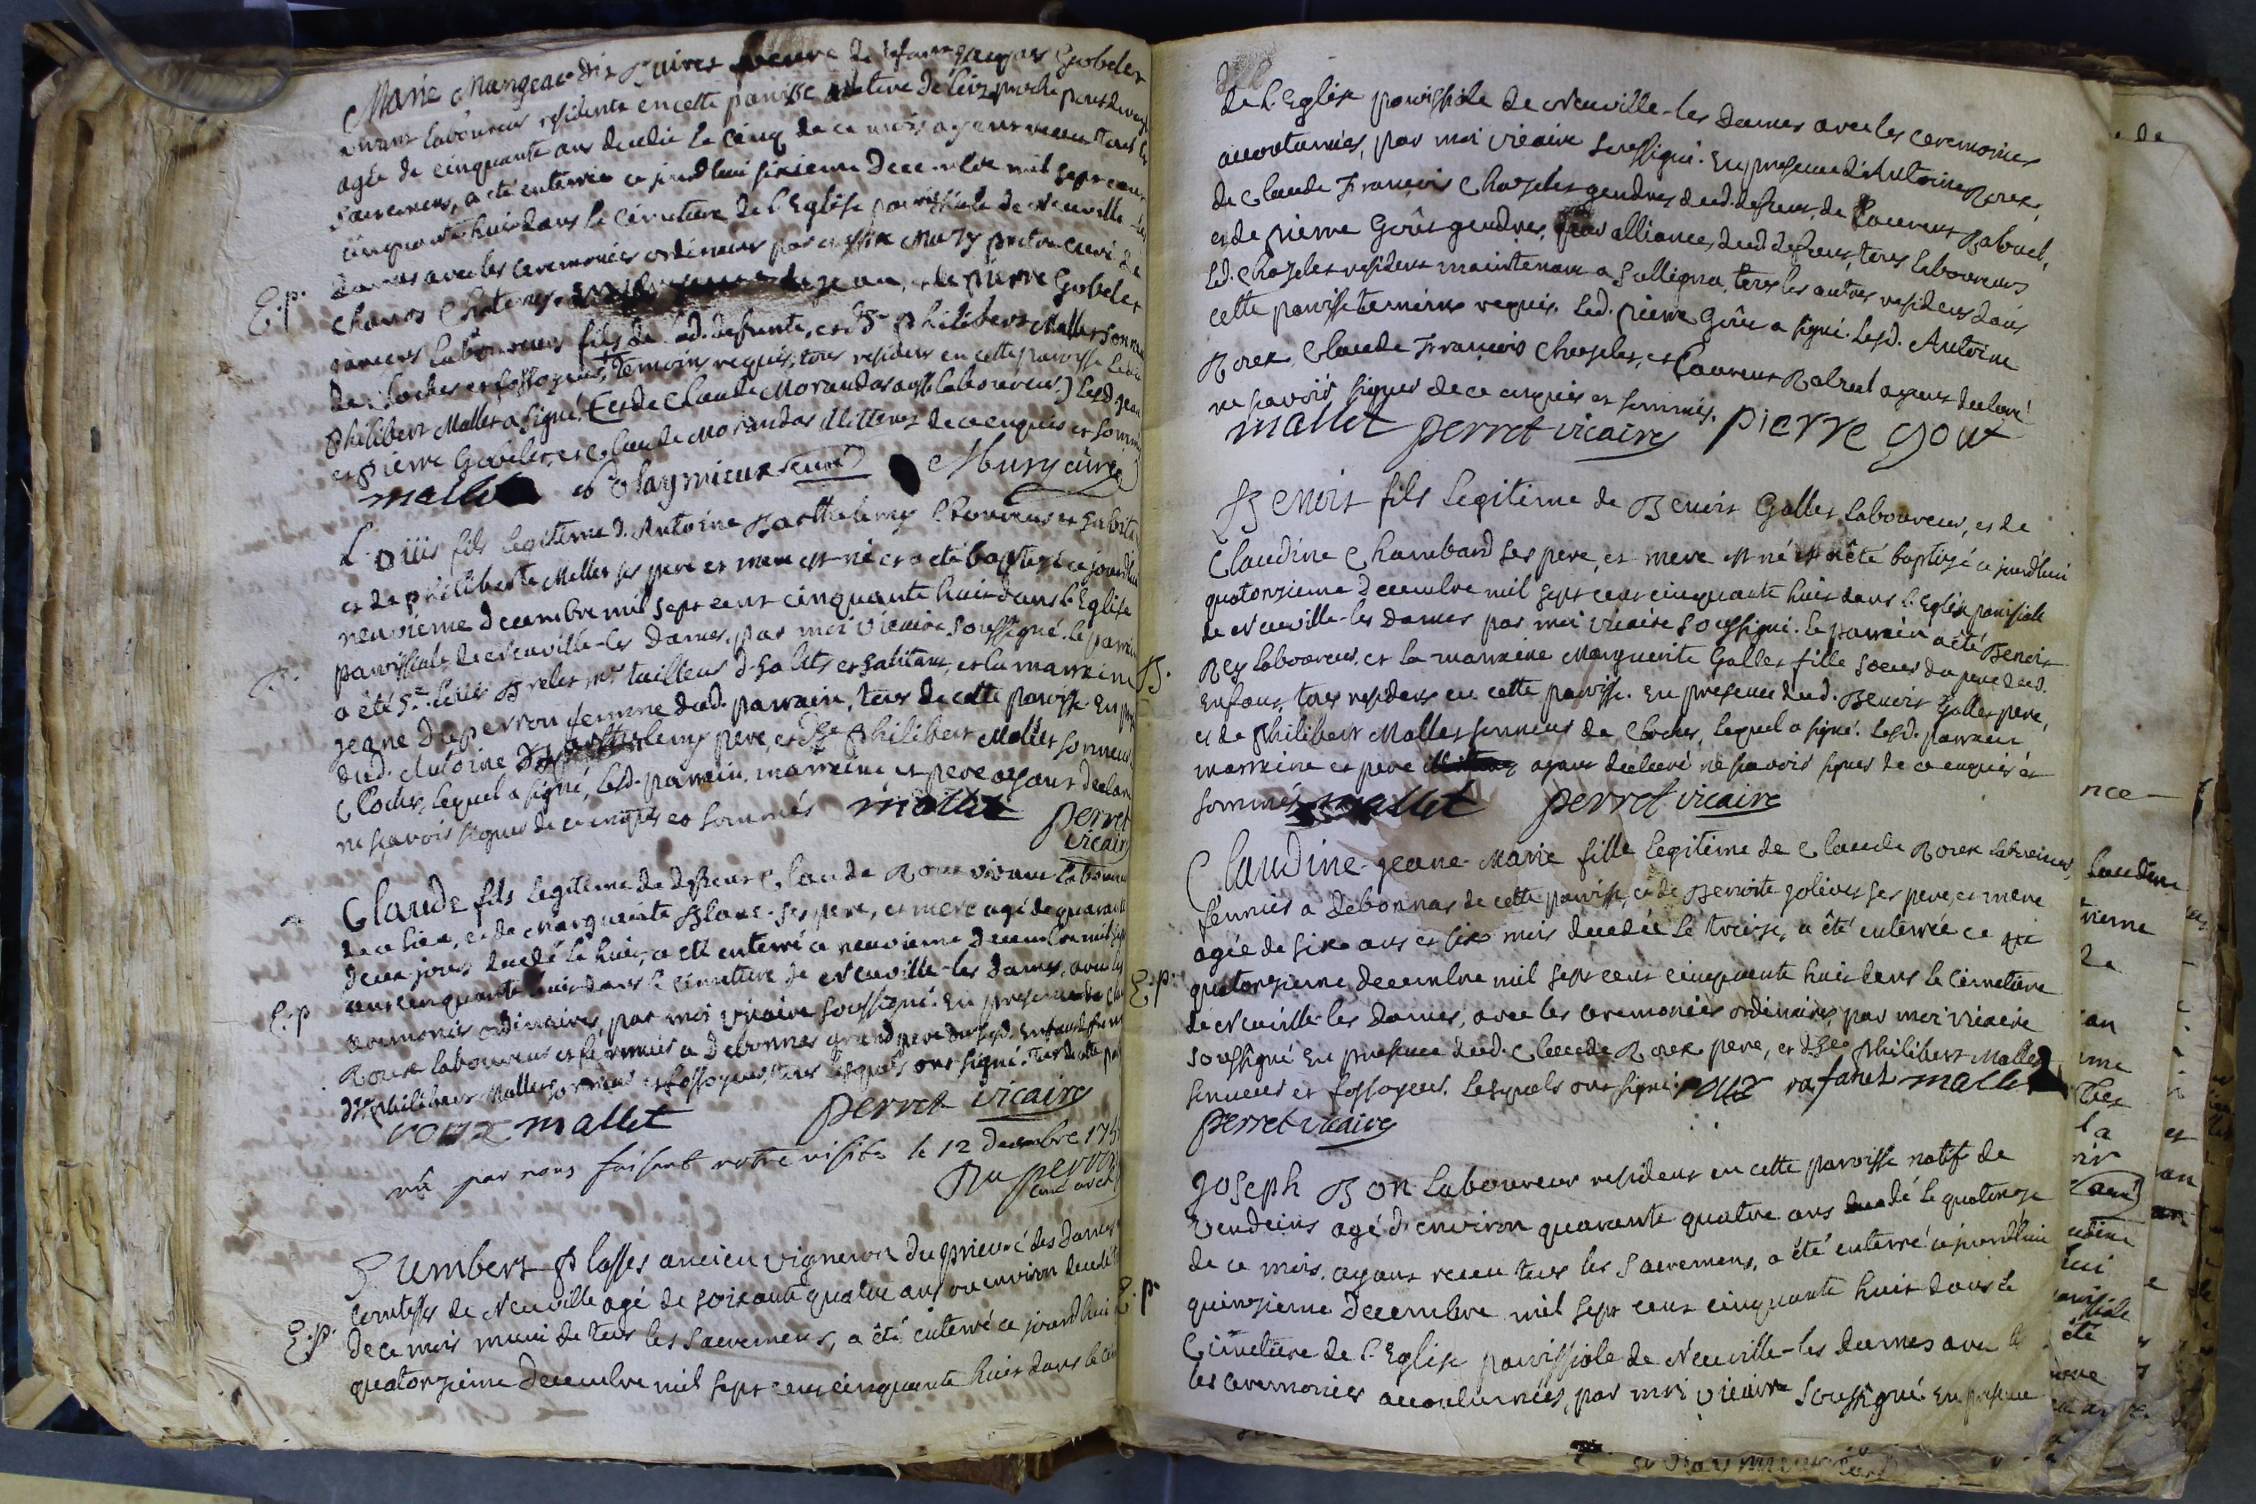 Marie Mangeat dit veuve de defunt Jacques Gobelet
vivant laboureur residente en cette paroisse native de proche
agée de cinquante ans decedée le cinq de ce mois ayant receu tous les
sacremens, a été enterrée ce jourd'hui sixieme decembre mil sept cent
cinquante huit dans le cimetiere de l'Eglise paroissiale de Neuville les
Dames avec les ceremonies ordinaires par Mury pretre curé de
E.p. de Jean, et de pierre Gobelet
laboureurs fils de lad. defunte, et d. Sr philibert Mallet sonneur
de cloches et fossoyeur, temoins requis, tous residens en cette paroisse led.
philibert Mallet a signé (et de Claude Morandas aussi laboureur) lesd. Jean
et pierre Gobelet, et Claude Morandas illitterés de ce enquis et sommés
mallet Mury curé
Louis fils legitime d. Antoine Barthelemy et habitant
et de philiberte Mallet ses pere et mere est né et a été baptisé ce jourd'hui
neuvieme decembre mil sept cent cinquante huit dans l'Eglise
paroissiale de Neuville-les Dames, par moi vicaire soussigné. le parrain
a été Sr. Louis Brelet mre tailleur d'habits et habitant, et la marraine
Jeane Duperron femme dud. parrain, tous de cette paroisse. En
dud. Antoine Barthelemy pere, et d. Sr philibert Mallet sonneur
cloches, lequel a signé, lesd. parrain, marraine et pere ayant declaré
ne sçavoir signer de ce enquis et sommés mallet perret
vicaire
Claude fils legitime de deffunt Claude Roux vivant laboureur
de ce lieu, et de Marguerite Blanc ses pere, et mere agé de quarante
deux jours decedé le huit, a été enterré ce neuvieme decembre mil sept
E.p cent cinquante huit dans le cimetiere de Neuville-les Dames, avec les
ceremonies ordinaires, par moi vicaire soussigné. En presence de Claude
Roux laboureur et fermier a Debonnas grand pere dud. enfant
philibert Mallet sonneur et fossoyeur, tous lesquels ont signé. Tous de cette
roux mallet perret vicaire
vû par nous faisant notre visite le 12 decembre 175
Du perron
Humbert Plasses ancien vigneron du prieuré des Dames
comtesses de Neuville agé de soixante quatre ans ou environ decedé
E.p. de ce mois muni de tous les sacremens, a été enterré ce jourd'hui
quatorzieme decembre mil sept cent cinquante huit dans le
de l'Eglise paroissiale de Neuville-les Dames avec les ceremonies
accoutumées, par moi vicaire soussigné. En presence d'Antoine Rorex,
de Claude François Chazelet gendres dud. defunt, de Laurent Rabuel,
et de pierre Goût gendres, par alliance, dud. defunt, tous laboureurs
led. Chazelet residant maintenant a Sulligna, tous les autres residens dans
cette paroisse temoins requis. led. pierre Goût a signé. lesd. Antoine
Rorex, Claude François Chazelet, et Laurent Rabuel ayant declaré
ne sçavoir signer de ce enquis et sommés.
mallet perret vicaire pierre gout
Benoit fils legitime de Benoit Gallet laboureur, et de
Claudine Chambard ses pere, et mere est né et a été baptisé ce jourd'hui
quatorzieme decembre mil sept cent cinquante huit dans l'Eglise paroissiale
de Neuville-les Dames par moi vicaire soussigné. le parrain a été Benoit
B. Rey laboureur, et la marraine Marguerite Gallet fille soeur du pere dud.
enfant, tous residens en cette paroisse. En presence dud. Benoit Gallet pere,
et de philibert Mallet sonneur de cloches, lequel a signé. lesd. parrain
marraine et pere ayant declaré ne sçavoir signer de ce enquis et
sommés mallet perret vicaire
Claudine-Jeane-Marie fille legitime de Claude Rorex laboureur,
fermier a Debonnas de cette paroisse, et de Benoite Golives ses pere, et mere
agée de six ans et six mois decedée le treize, a été enterrée ce
E.p. quatorzieme decembre mil sept cent cinquante huit dans le cimetiere
de Neuville-les Dames, avec les ceremonies ordinaires par moi vicaire
soussigné En presence dud. Claude Rorex pere, et d. Sr philibert Mallet
sonneur et fossoyeur. lesquels ont signé. roux rafanel mallet
perret vicaire
Joseph Bon laboureur resident en cette paroisse natif de
Vendeins agé d'environ quarante quatre ans decedé le quatorze
de ce mois, ayant receu tous les sacremens, a été enterré ce jourd'hui
E.p. quinzieme decembre mil sept cent cinquante huit dans le
cimetiere de l'Eglise paroissiale de Neuville-les Dames avec
les ceremonies accoutumées, par moi vicaire soussigné En presence